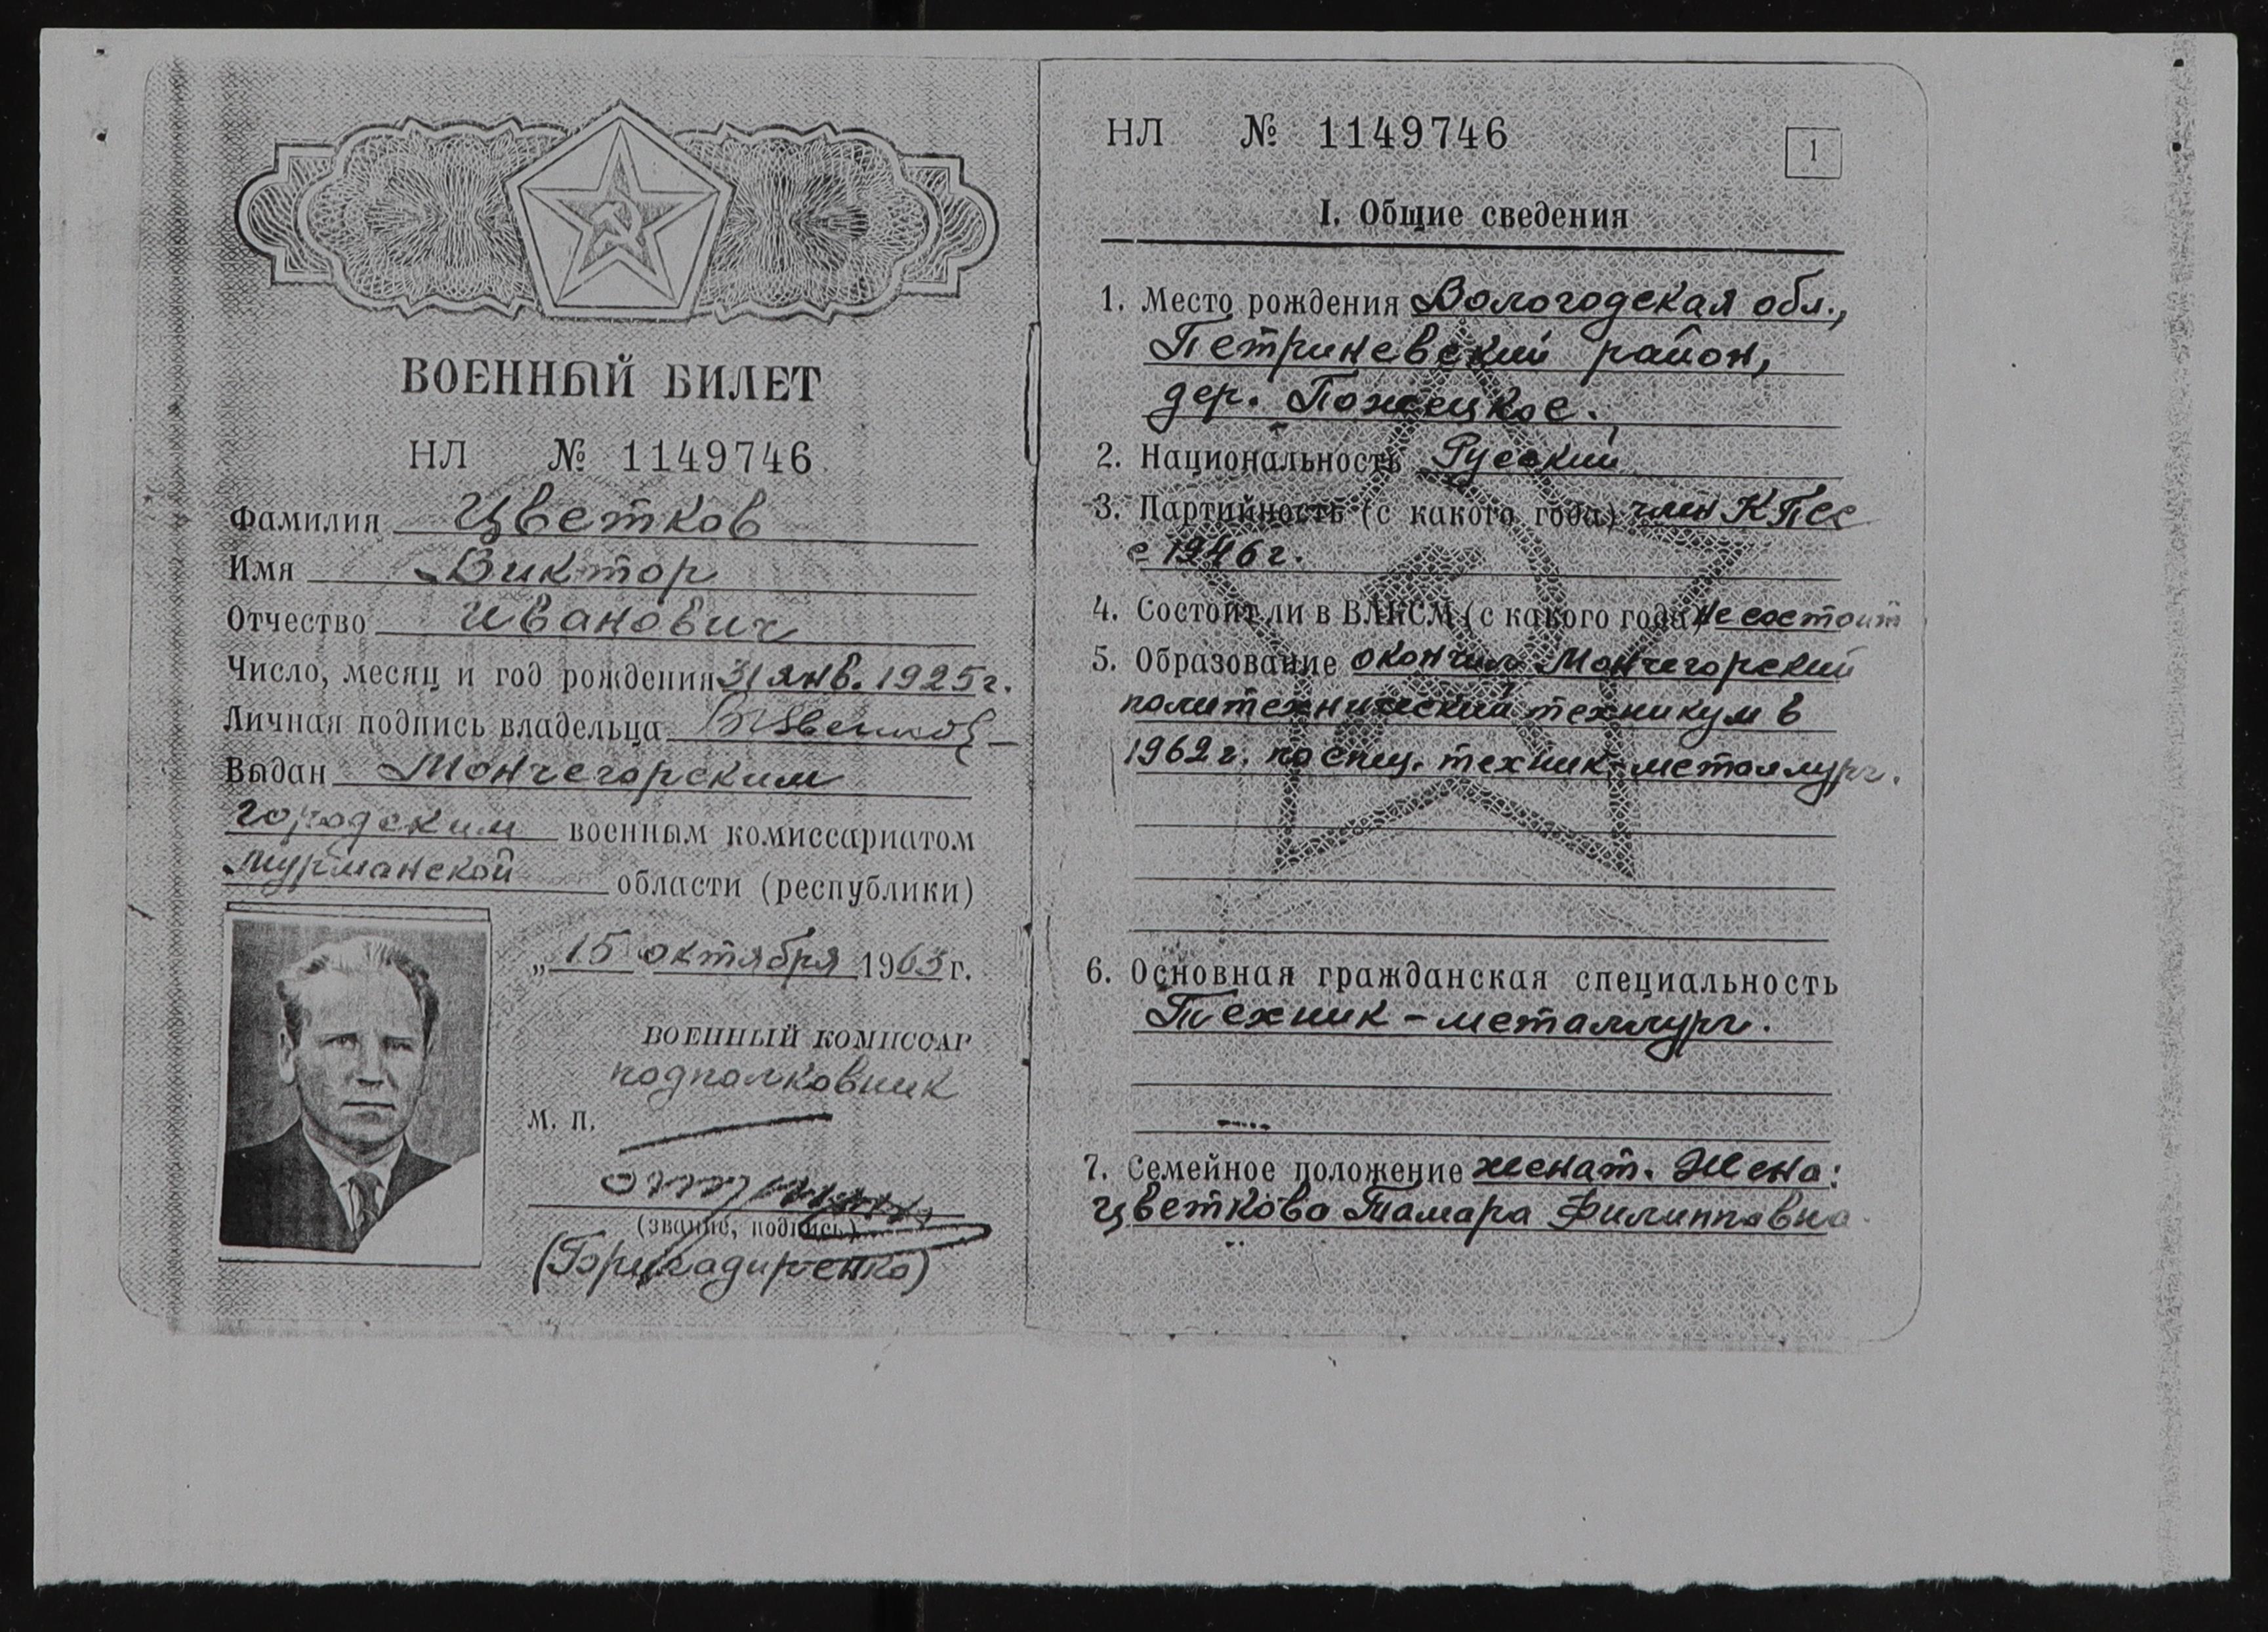 ВОЕННЫЙ БИЛЕТ
НЛ № 1149746
Фамилия Цветков
Имя Виктор
Отчество Иванович
Число, месяц и год рождения 31 янв. 1925 г.
Личная подпись владельца ВЦветков
Выдан Мончегорским
городским военным комиссариатом
Мурманской области (республики)
„15 октября 1963 г.
ВОЕННЫЙ КОМИССАР
подполковник
М. П.
(звание, подпись)
(Бригадиренко)
НЛ № 1149746
1
I. Общие сведения
1. Место рождения Вологодская обл.,
Петриневский район,
дер. Пожецкое.
2. Национальность Русский
3. Партийность (с какого года) член КПСС
с 1946 г.
4. Состоит ли в ВЛКСМ (с какого года) не состоит
5. Образование окончил Мончегорский
политехнический техникум в
1962 г. по спец. техник-металлург.
6. Основная гражданская специальность
Техник-металлург.
7. Семейное положение женат. Жена:
Цветкова Тамара Филипповна